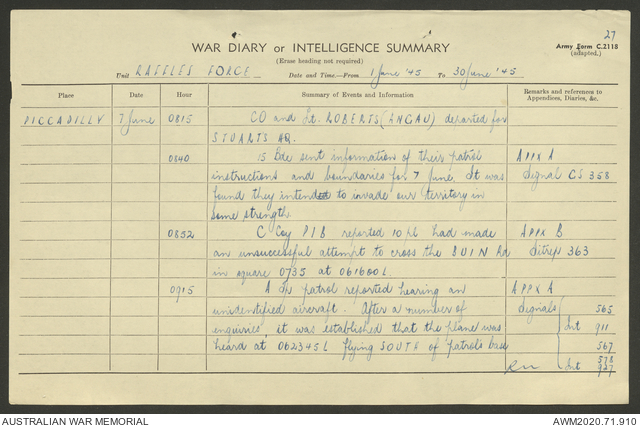 27
WAR DIARY or INTELLIGENCE SUMMARY
Army Form C.2118
(adapted.)
(Erase heading not required)
Unit RAFFLES FORCE Date and Time.—From 1 June '45 To 30 June '45
Place Date Hour Summary of Events and Information Remarks and references to
Appendices, Diaries, &c.
PICCADILLY 7 June 0815 CO and Lt. ROBERTS (ANGAU) departed for
STUARTS HQ.
0840 15 Bde sent information of their patrol APPX A
instructions and boundaries for 7 June. It was Signal CS 358
found they intended to invade our territory in
some strength
0852 C Coy PIB reported 10 pl had made APPX B
an unsuccessful attempt to cross the BUIN Rd Sitrep 363
in square 0735 at 061600L
0915 A Tp patrol reported hearing an APPX A
unidentified aircraft. After a number of Signals 565
enquiries, it was established that the plane was Int 911
heard at 062345L flying SOUTH of patrol's base 567
578
Int 927
AUSTRALIAN WAR MEMORIAL AWM2020.71.910